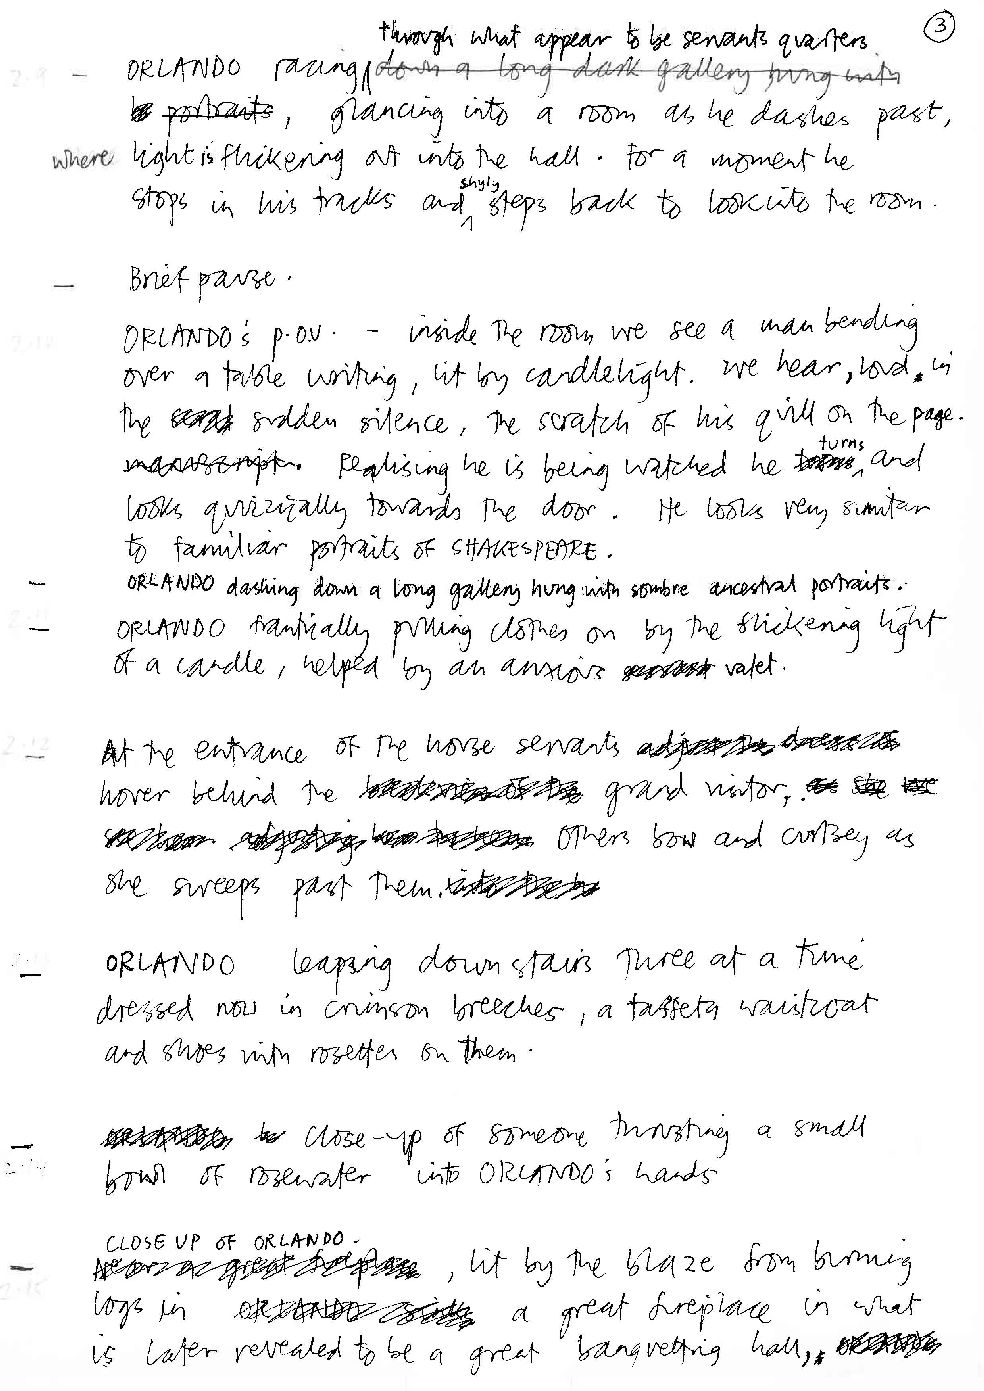 3
through what appear to be servants quarters
2.9 - ORLANDO racing down a long dark gallery hung with
portraits, glancing into a room as he dashes past,
where light is flickering out into the hall. For a moment he
shyly
stops in his tracks and steps back to look into the room.
- Brief pause.
ORLANDO's p.o.v. - inside the room we see a man bending
over a table writing, lit by candlelight. We hear, loud in
the sudden silence, the scratch of his quill on the page.
turns
manuscript. Realising he is being watched he turns, and
looks quizzically towards the door. He looks very similar
to familiar portraits of SHAKESPEARE.
- ORLANDO dashing down a long gallery hung with sombre ancestral portraits.
- ORLANDO frantically pulling clothes on by the flickering light
of a candle, helped by an anxious valet.
2.12 - At the entrance of the house servants adjust the dress
hover behind the grand visitor, as she
others bow and curtsey as
she sweeps past them.
- ORLANDO leaping down stairs three at a time
dressed now in crimson breeches, a taffeta waistcoat
and shoes with rosettes on them.
- ORLANDO Close-up of someone thrusting a small
2.14 bowl of rosewater into ORLANDO's hands
CLOSE UP OF ORLANDO.
- Near a great fireplace, lit by the blaze from burning
2.15 logs in ORLANDO a great fireplace in what
is later revealed to be a great banquetting hall,